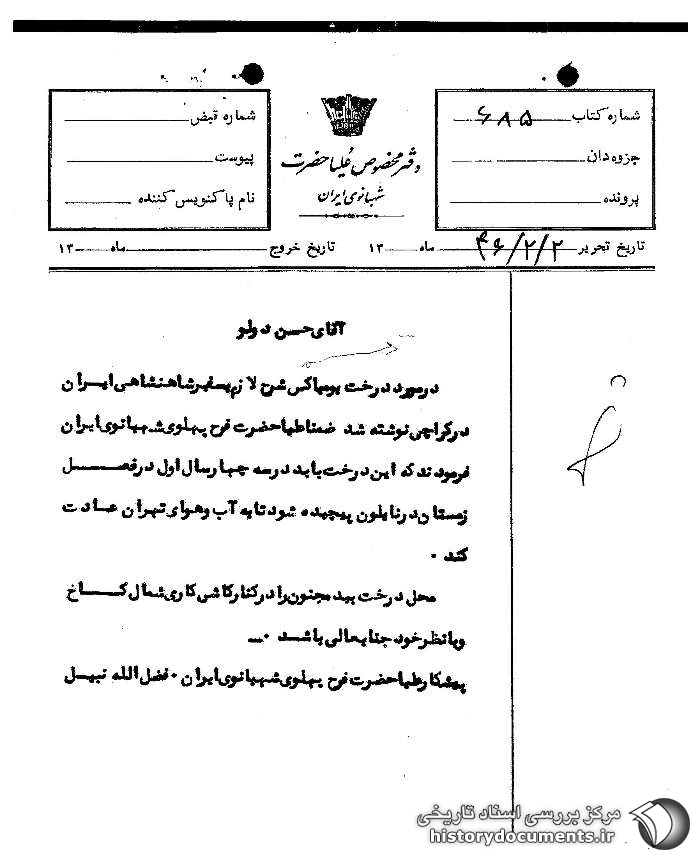 شماره کتاب ۶۸۵
جزوه دان
پرونده
دفتر مخصوص علیاحضرت
شهبانوی ایران
شماره قبض
پیوست
نام پاکنویس کننده
تاریخ تحریر ۴۶/۲/۲ ماه ۱۳ تاریخ خروج ماه ۱۳
آقای حسن دولو
درمورد درخت بومباکس شرح لازم بسفیر شاهنشاهی ایران
درکراچی نوشته شد ضمناً علیاحضرت فرح پهلوی شهبانوی ایران
فرمودند که این درخت باید درسه چهار سال اول درفصل
زمستان درنایلون پیچیده شود تا به آب وهوای تهران عادت
کند ۰
محل درخت بید مجنون را درکنار کاشی کاری شمال کاخ
وبا نظر خود جنابعالی باشد ۰
پیشکار علیاحضرت فرح پهلوی شهبانوی ایران ۰ فضل الله نبیل
مرکز بررسی اسناد تاریخی
historydocuments.ir